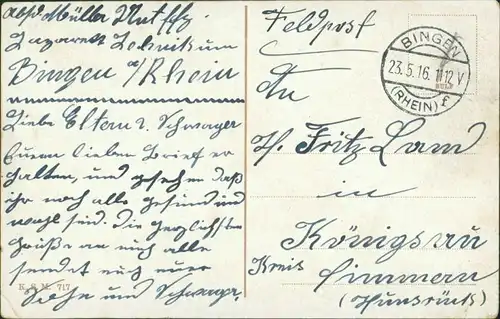 Abs. Müller
Lazarett Technikum
Bingen a/Rhein
Liebe Eltern u. Schwager
Euern lieben Brief er
halten, und gesehen daß
ihr noch alle gesund und
wohl seid. Die herzlichsten
Grüße an euch alle
sendet euch euer
Sohn und Schwager.
K. S. M. 717
Feldpost
BINGEN
23.5.16. 11-12 V
(RHEIN)
An
H. Fritz Lamd
in
Königsau
Kreis Simmern
(Hunsrück)